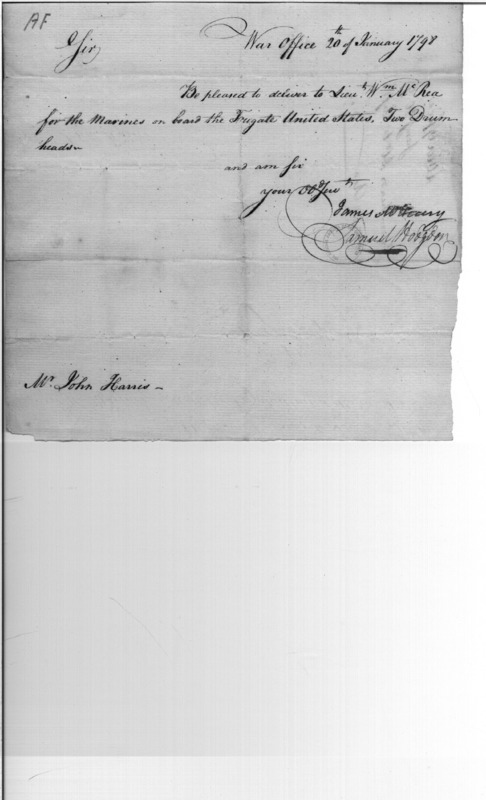 AF
Sir, War Office 20th of January 1798
Be pleased to deliver to Lieut. Wm. McRea
for the Marines on board the Frigate United States, Two Drum
heads.
and am sir
your Obd Sevt
James McHenry
Samuel Hodgdon
Mr. John Harris